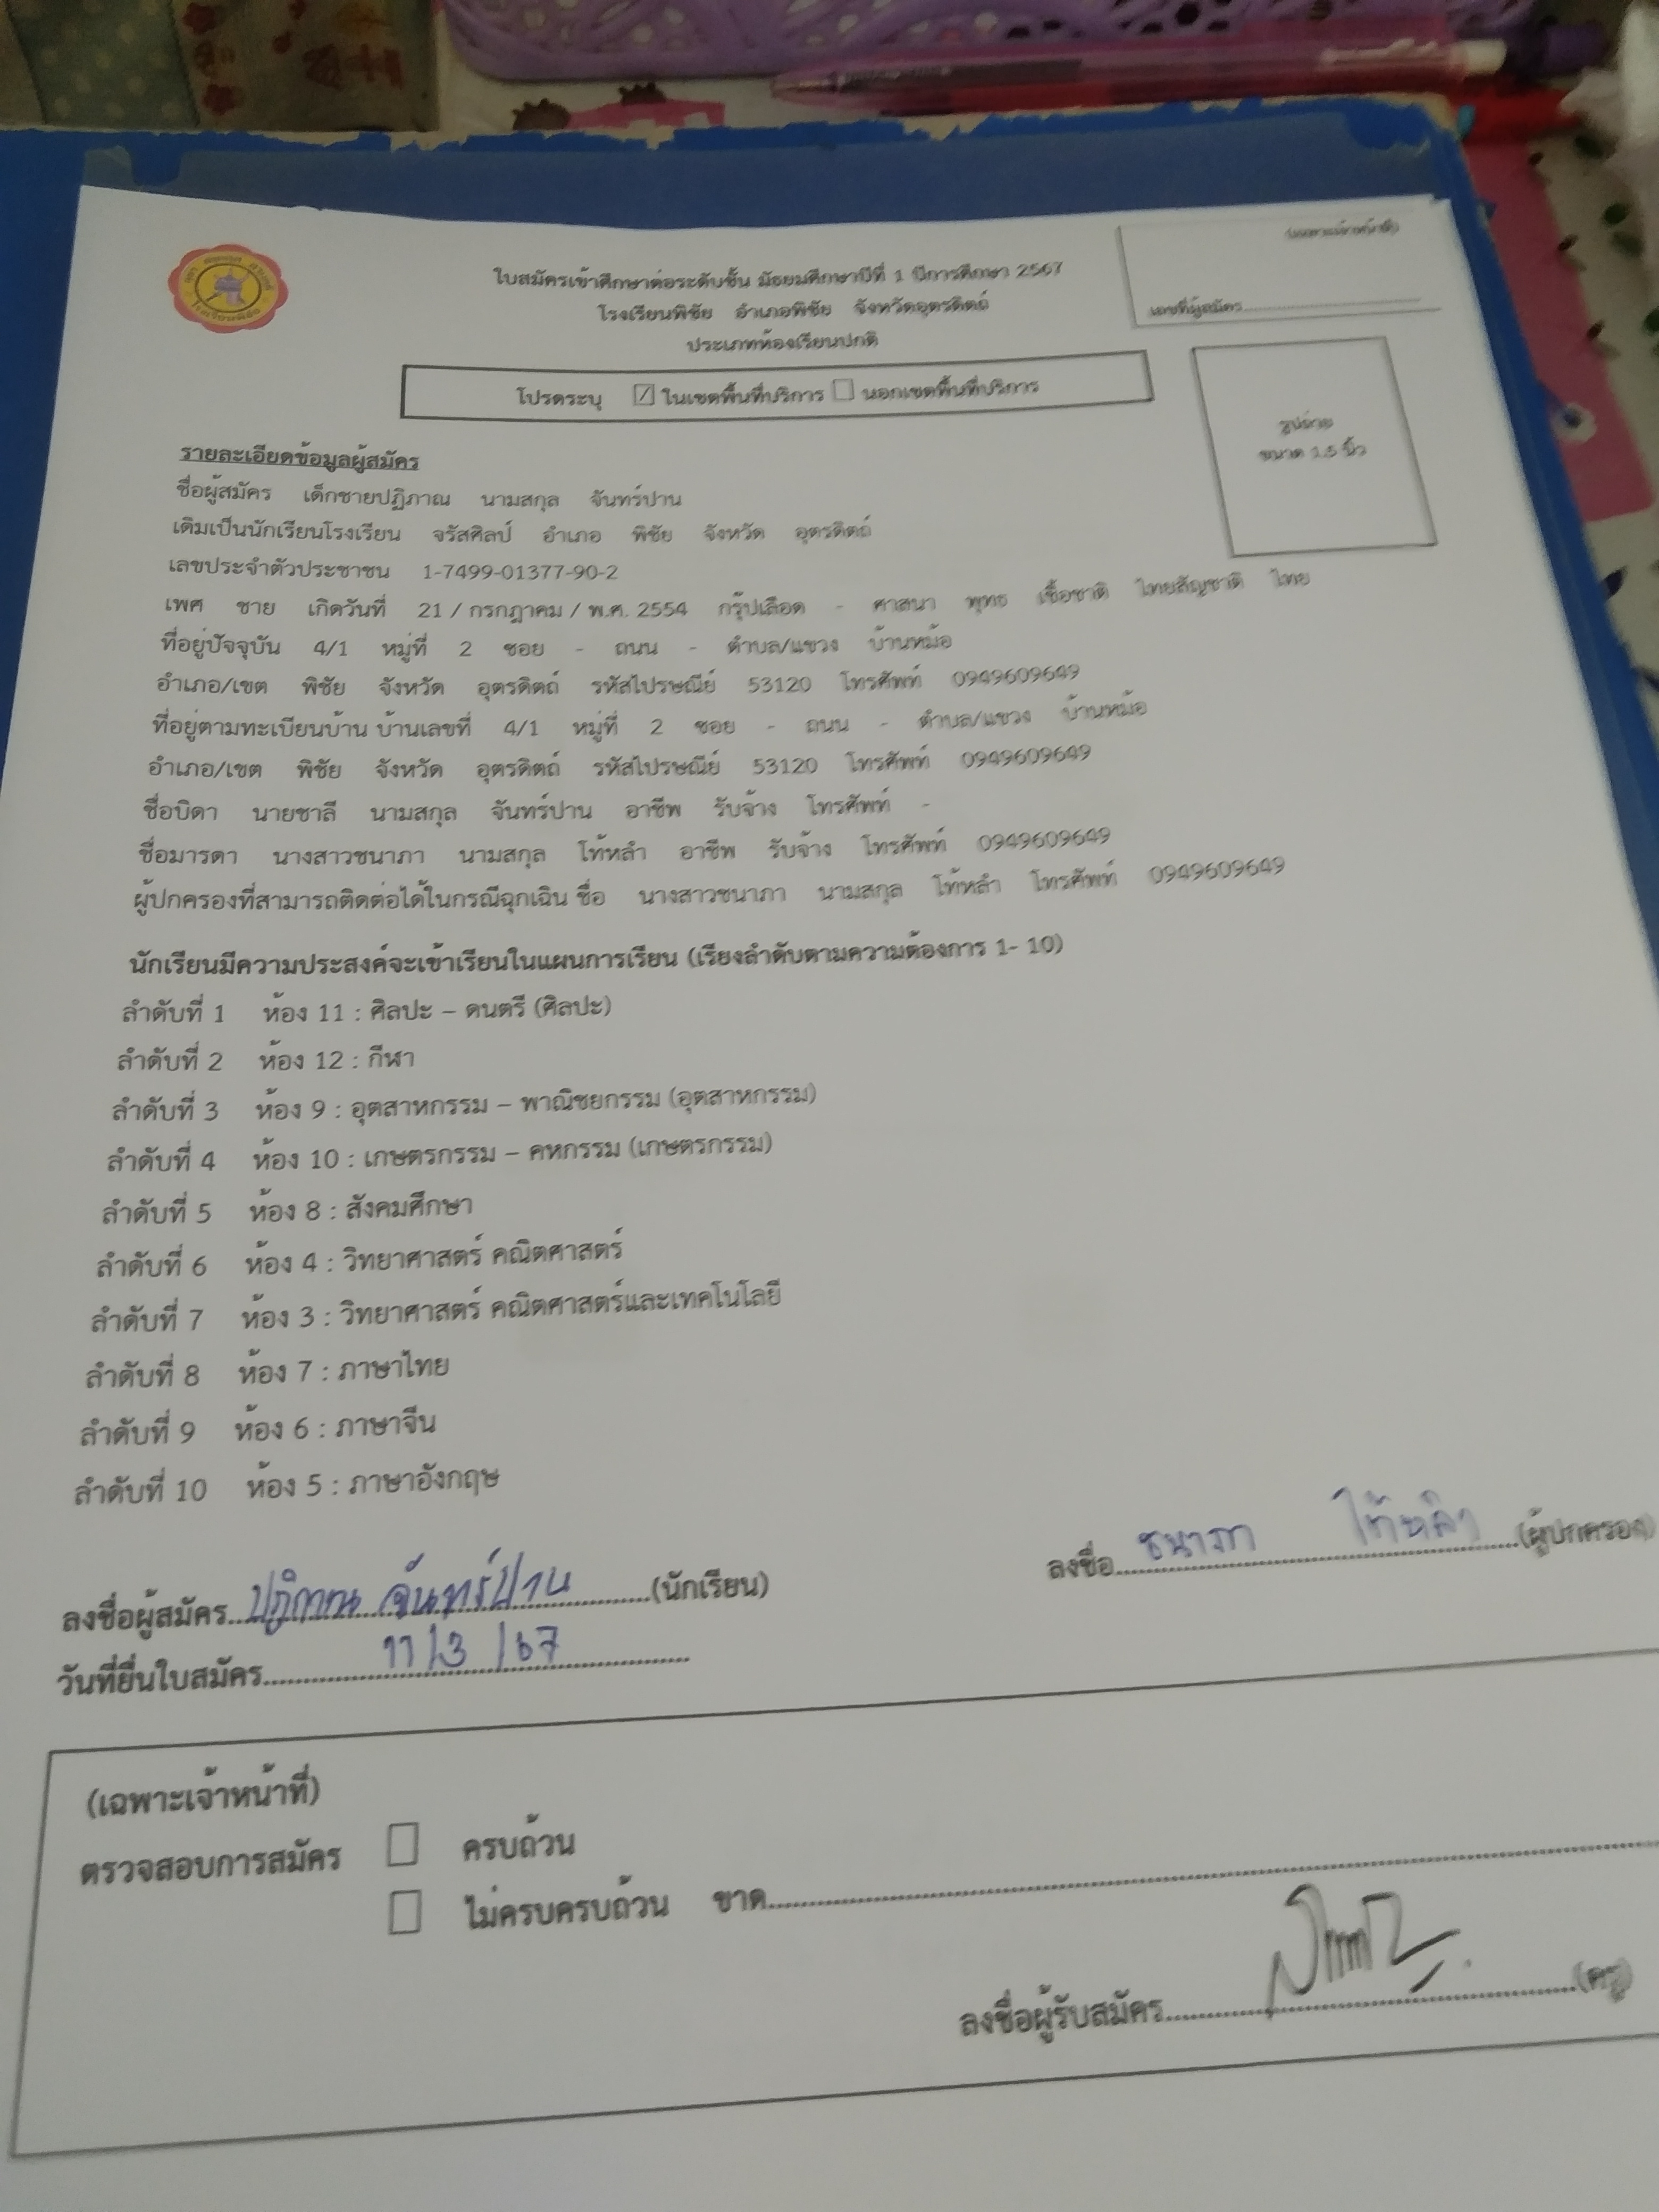 ใบสมัครเข้าศึกษาต่อระดับชั้น มัธยมศึกษาปีที่ 1 ปีการศึกษา 2567
โรงเรียนพิชัย อำเภอพิชัย จังหวัดอุตรดิตถ์
ประเภทห้องเรียนปกติ
เลขที่ผู้สมัคร
โปรดระบุ ☑ ในเขตพื้นที่บริการ ☐ นอกเขตพื้นที่บริการ
รูปถ่าย
ขนาด 1.5 นิ้ว
รายละเอียดข้อมูลผู้สมัคร
ชื่อผู้สมัคร เด็กชายปฏิภาณ นามสกุล จันทร์ปาน
เดิมเป็นนักเรียนโรงเรียน จรัสศิลป์ อำเภอ พิชัย จังหวัด อุตรดิตถ์
เลขประจำตัวประชาชน 1-7499-01377-90-2
เพศ ชาย เกิดวันที่ 21 / กรกฎาคม / พ.ศ. 2554 กรุ๊ปเลือด - ศาสนา พุทธ เชื้อชาติ ไทยสัญชาติ ไทย
ที่อยู่ปัจจุบัน 4/1 หมู่ที่ 2 ซอย - ถนน - ตำบล/แขวง บ้านหม้อ
อำเภอ/เขต พิชัย จังหวัด อุตรดิตถ์ รหัสไปรษณีย์ 53120 โทรศัพท์ 0949609649
ที่อยู่ตามทะเบียนบ้าน บ้านเลขที่ 4/1 หมู่ที่ 2 ซอย - ถนน - ตำบล/แขวง บ้านหม้อ
อำเภอ/เขต พิชัย จังหวัด อุตรดิตถ์ รหัสไปรษณีย์ 53120 โทรศัพท์ 0949609649
ชื่อบิดา นายชาลี นามสกุล จันทร์ปาน อาชีพ รับจ้าง โทรศัพท์ -
ชื่อมารดา นางสาวชนาภา นามสกุล โท้หลำ อาชีพ รับจ้าง โทรศัพท์ 0949609649
ผู้ปกครองที่สามารถติดต่อได้ในกรณีฉุกเฉิน ชื่อ นางสาวชนาภา นามสกุล โท้หลำ โทรศัพท์ 0949609649
นักเรียนมีความประสงค์จะเข้าเรียนในแผนการเรียน (เรียงลำดับตามความต้องการ 1- 10)
ลำดับที่ 1 ห้อง 11 : ศิลปะ – ดนตรี (ศิลปะ)
ลำดับที่ 2 ห้อง 12 : กีฬา
ลำดับที่ 3 ห้อง 9 : อุตสาหกรรม – พาณิชยกรรม (อุตสาหกรรม)
ลำดับที่ 4 ห้อง 10 : เกษตรกรรม – คหกรรม (เกษตรกรรม)
ลำดับที่ 5 ห้อง 8 : สังคมศึกษา
ลำดับที่ 6 ห้อง 4 : วิทยาศาสตร์ คณิตศาสตร์
ลำดับที่ 7 ห้อง 3 : วิทยาศาสตร์ คณิตศาสตร์และเทคโนโลยี
ลำดับที่ 8 ห้อง 7 : ภาษาไทย
ลำดับที่ 9 ห้อง 6 : ภาษาจีน
ลำดับที่ 10 ห้อง 5 : ภาษาอังกฤษ
ลงชื่อ ชนาภา โท้หลำ (ผู้ปกครอง)
ลงชื่อผู้สมัคร ปฏิภาณ จันทร์ปาน (นักเรียน)
วันที่ยื่นใบสมัคร 11/3/67
(เฉพาะเจ้าหน้าที่)
ตรวจสอบการสมัคร ☐ ครบถ้วน
☐ ไม่ครบครบถ้วน ขาด
ลงชื่อผู้รับสมัคร (ครู)